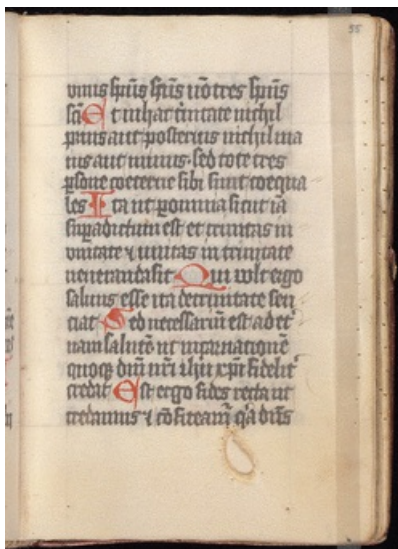 55
vnus spūs sc̄us nō tres spūs
sc̄i Et in hac trinitate nichil
prius aut posterius nichil ma
ius aut minus. sed tote tres
p̄sone coeterne sibi sunt coequa
les Ita ut ꝑ omnia sicut iā
supradictum est et trinitas in
vnitate ⁊ vnitas in trinitate
veneranda sit Qui vult ergo
saluus esse ita de trinitate sen
ciat Sed necessariū est ad et̾
nam salutē ut incarnationē
quoqꝫ dnī nrī ihu xp̄i fidelit̾
credat Est ergo fides recta ut
credamus ⁊ cōfiteam̄ q̄a dn̄s